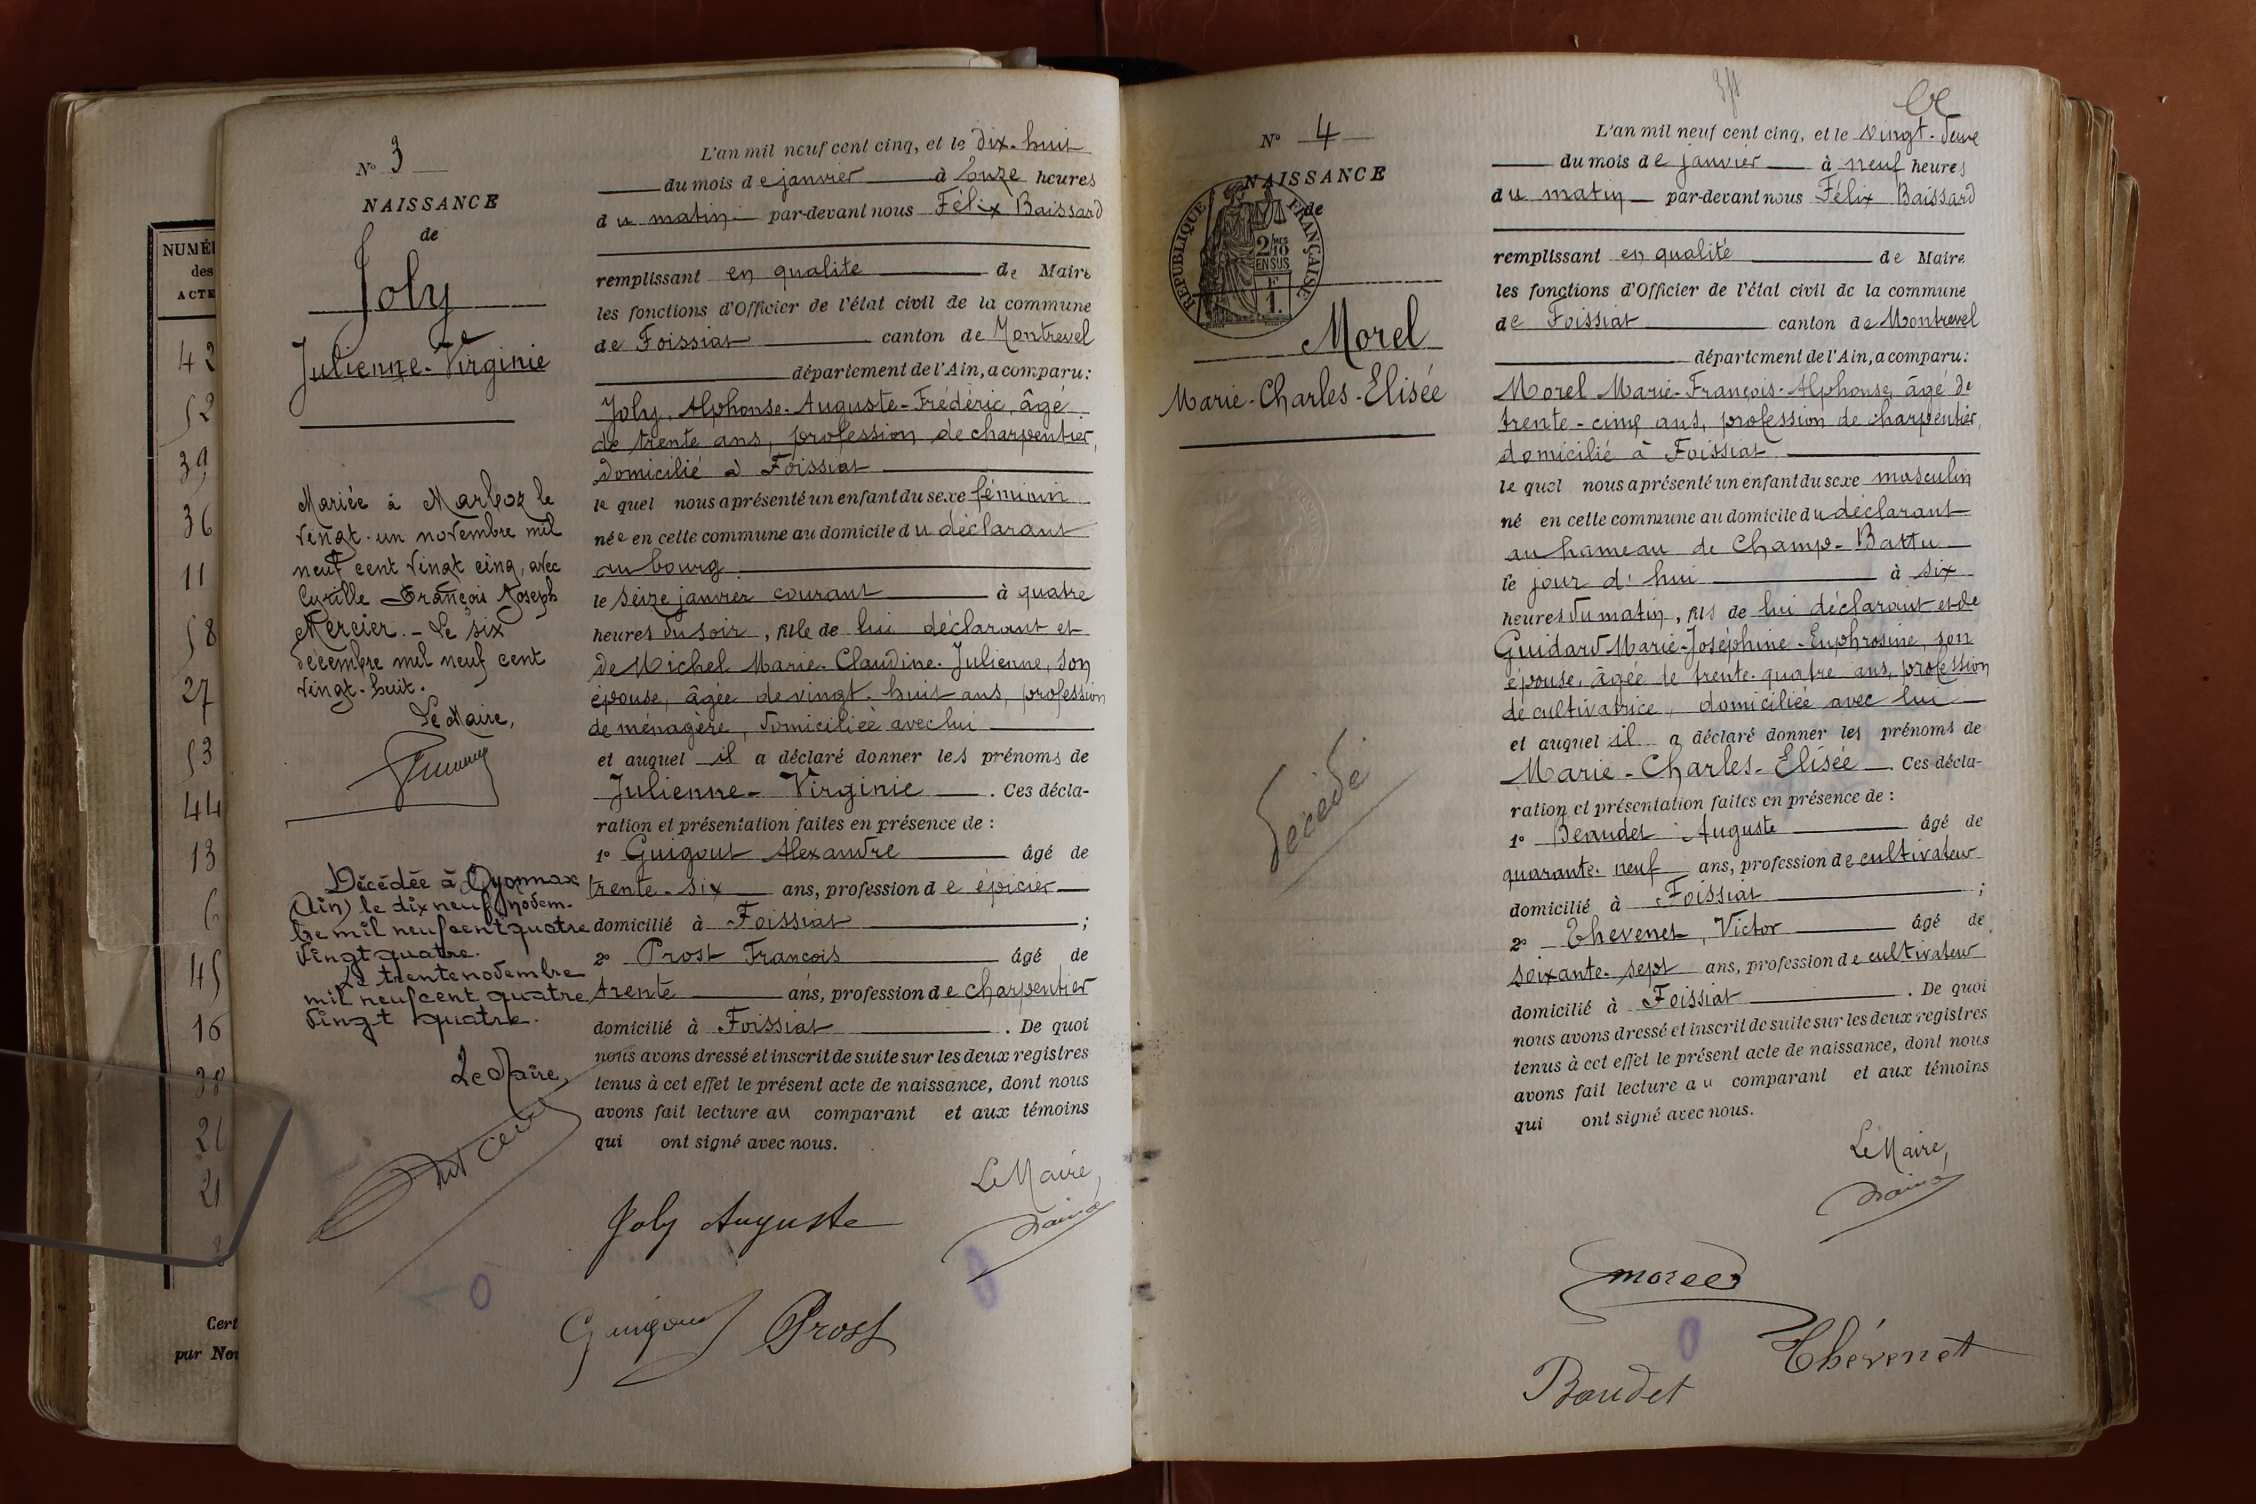 NUMÉ
des
ACTE
42
52
39
36
11
58
27
53
44
13
6
45
16
38
21
21
8
Cert
par No
N° 3
NAISSANCE
de
Joly
Julienne-Virginie
Mariée à Marboz le
vingt-un novembre mil
neuf cent vingt cinq, avec
Cyrille François Joseph
Mercier. - Le six
décembre mil neuf cent
vingt-huit.
Le Maire,
Décédée à Oyonnax
(Ain) le dix neuf novem-
bre mil neuf cent quatre
vingt quatre.
Le trente novembre
mil neuf cent quatre
vingt quatre.
Le Maire,
L'an mil neuf cent cinq, et le dix-huit
du mois de janvier à onze heures
du matin par-devant nous Félix Baissard
remplissant en qualité de Maire
les fonctions d'Officier de l'état civil de la commune
de Foissiat canton de Montrevel
département de l'Ain, a comparu:
Joly, Alphonse-Auguste-Frédéric, âgé
de trente ans, profession de charpentier,
domicilié à Foissiat
lequel nous a présenté un enfant du sexe féminin
née en cette commune au domicile du déclarant
au bourg
le seize janvier courant à quatre
heures du soir, fille de lui déclarant et
de Michel Marie-Claudine-Julienne, son
épouse, âgée de vingt-huit ans, profession
de ménagère, domiciliée avec lui
et auquel il a déclaré donner les prénoms de
Julienne-Virginie. Ces décla-
ration et présentation faites en présence de :
1° Guigout Alexandre âgé de
trente-six ans, profession de épicier
domicilié à Foissiat ;
2° Prost François âgé de
trente ans, profession de charpentier
domicilié à Foissiat. De quoi
nous avons dressé et inscrit de suite sur les deux registres
tenus à cet effet le présent acte de naissance, dont nous
avons fait lecture au comparant et aux témoins
qui ont signé avec nous.
Le Maire,
Joly Auguste
Guigout Prost
N° 4
NAISSANCE
de
RÉPUBLIQUE FRANÇAISE
2/10
EN SUS
F
1.
Morel
Marie-Charles-Elisée
Décédé
L'an mil neuf cent cinq, et le vingt-deux
du mois de janvier à neuf heures
du matin par-devant nous Félix Baissard
remplissant en qualité de Maire
les fonctions d'Officier de l'état civil de la commune
de Foissiat canton de Montrevel
département de l'Ain, a comparu:
Morel Marie-François-Alphonse, âgé de
trente-cinq ans, profession de charpentier,
domicilié à Foissiat
lequel nous a présenté un enfant du sexe masculin
né en cette commune au domicile du déclarant
au hameau de Champ-Battu
le jour d'hui à six
heures du matin, fils de lui déclarant et de
Guidard Marie-Joséphine-Euphrosine, son
épouse, âgée de trente-quatre ans, profession
de cultivatrice, domiciliée avec lui
et auquel il a déclaré donner les prénoms de
Marie-Charles-Elisée. Ces décla-
ration et présentation faites en présence de :
1° Beaudet Auguste âgé de
quarante-neuf ans, profession de cultivateur
domicilié à Foissiat ;
2° Thevenet, Victor âgé de
soixante-sept ans, profession de cultivateur
domicilié à Foissiat. De quoi
nous avons dressé et inscrit de suite sur les deux registres
tenus à cet effet le présent acte de naissance, dont nous
avons fait lecture au comparant et aux témoins
qui ont signé avec nous.
Le Maire,
morel
Thévenet
Baudet